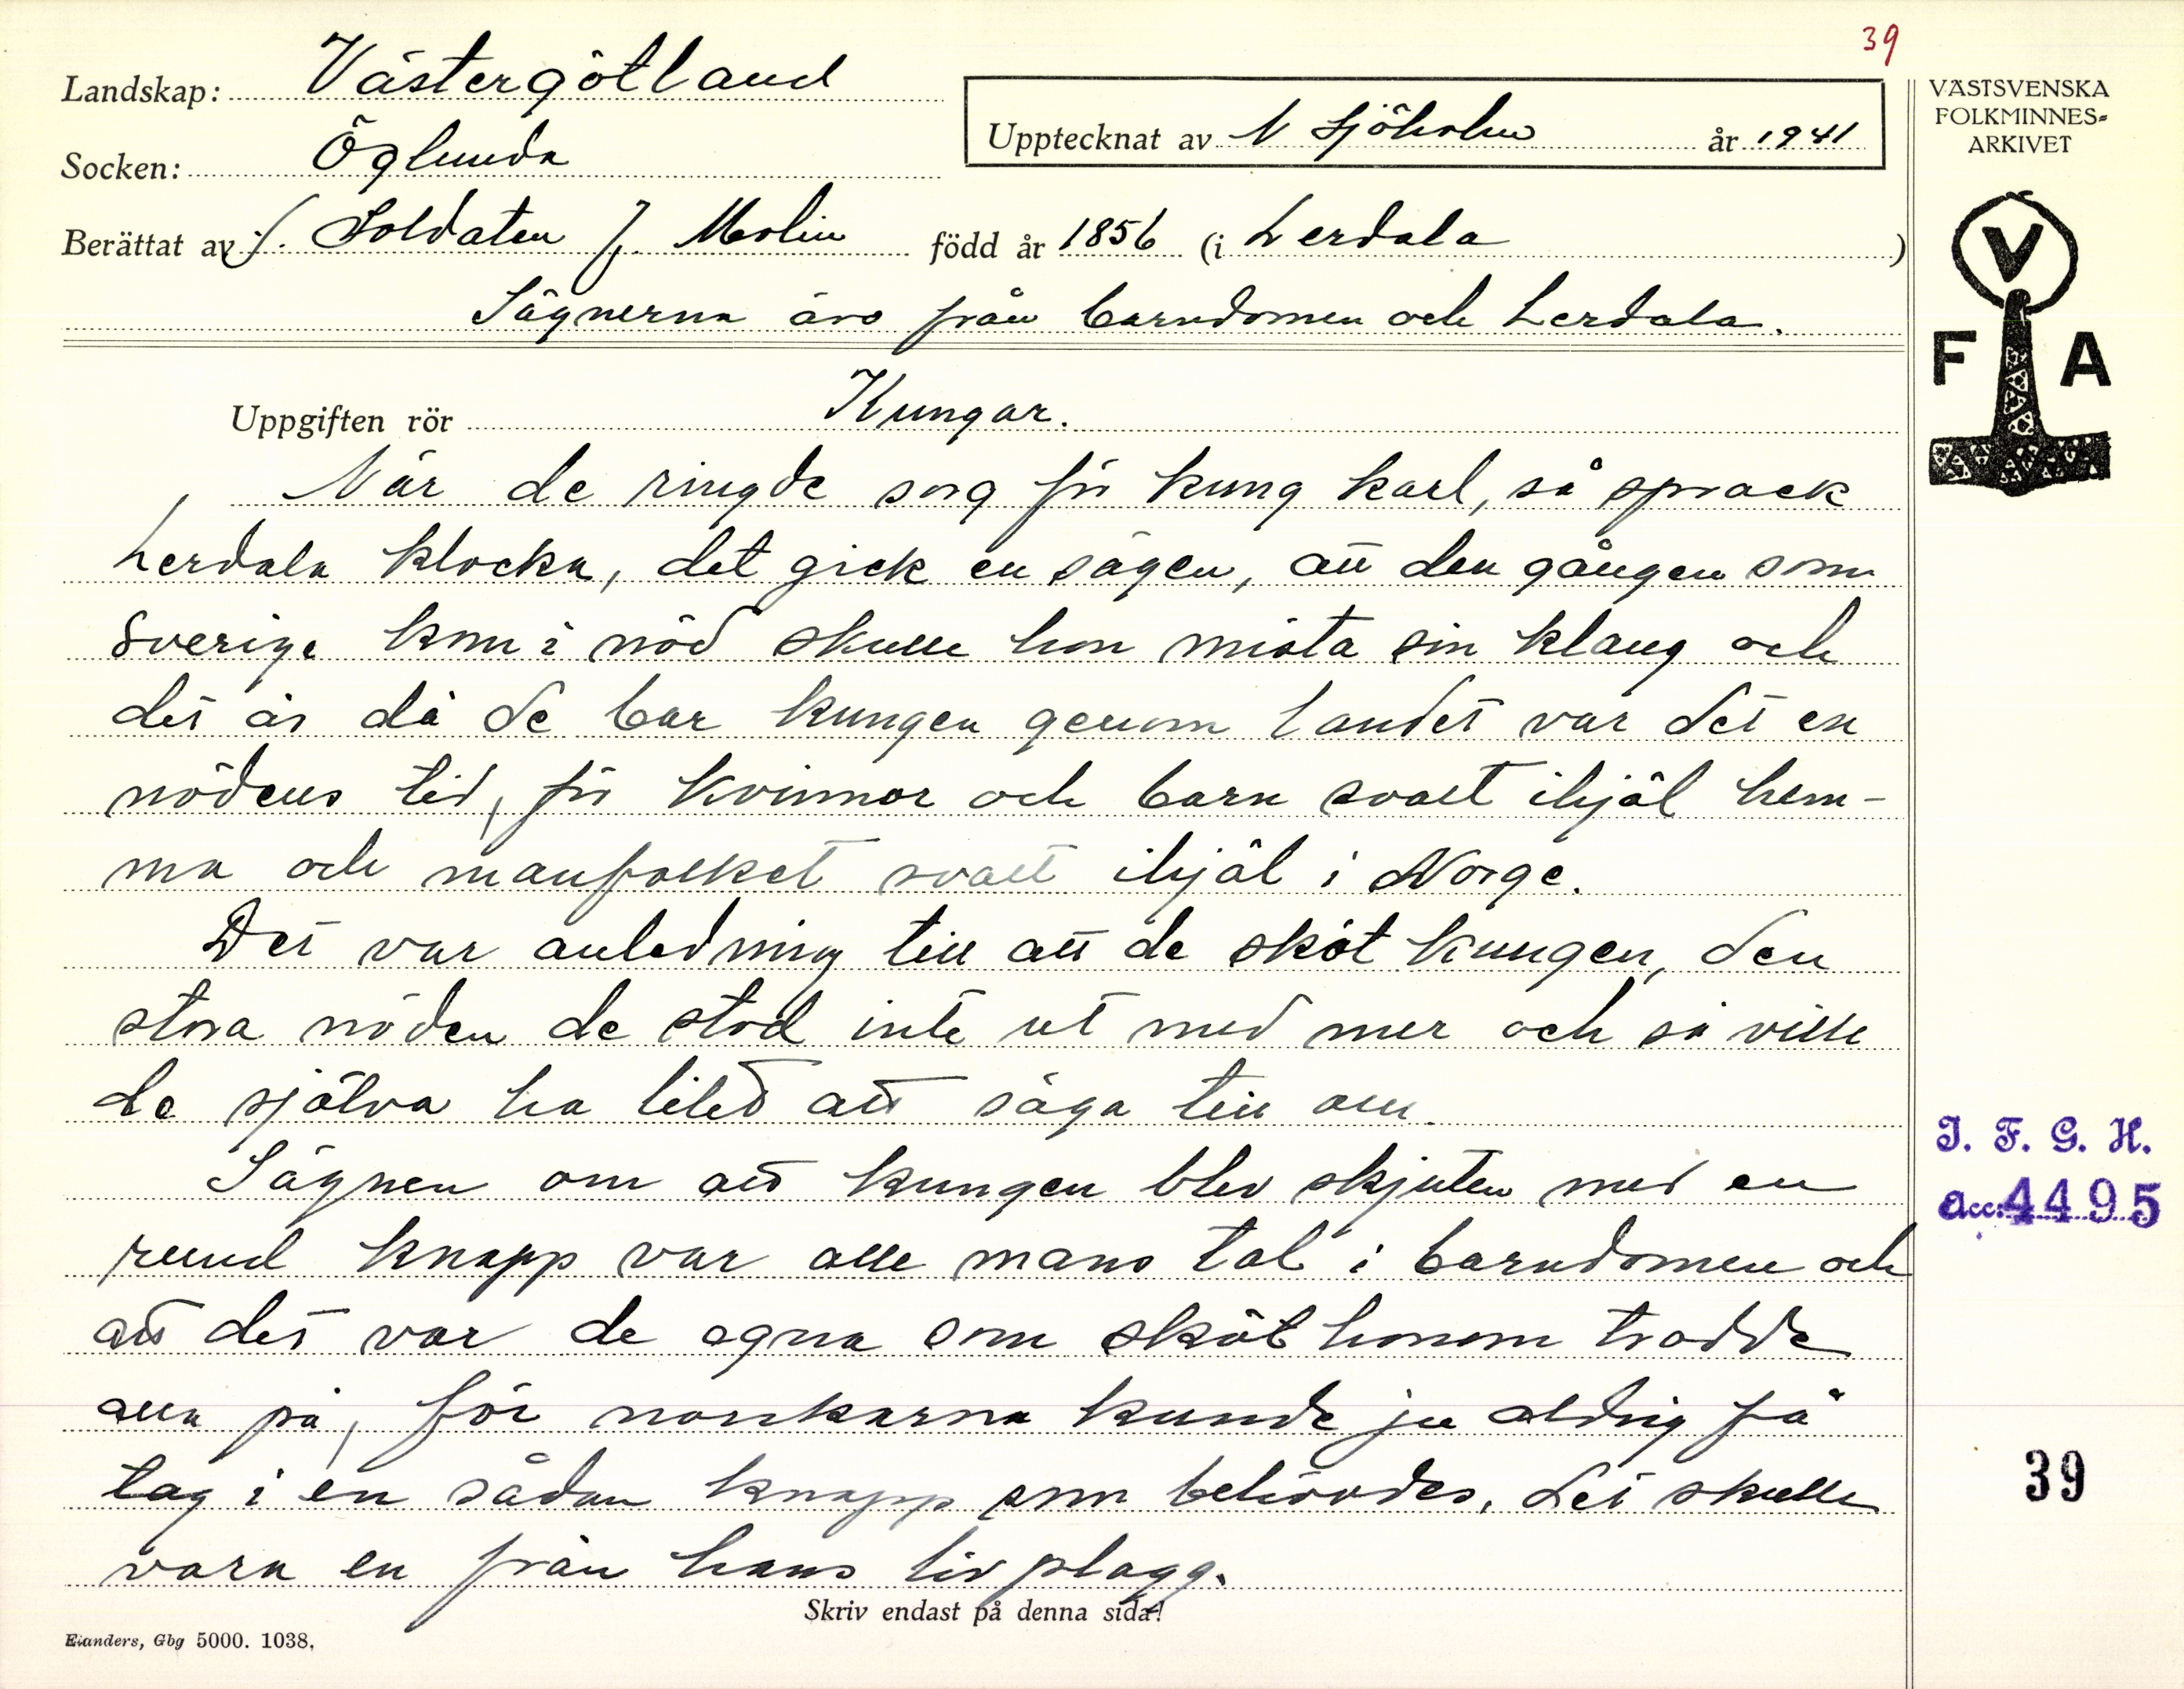 39
Landskap: Västergötland
Socken: Öglunda
Upptecknat av N Sjöholm år 1941
Berättat av f. Soldaten J. Molin född år 1856 (i Lerdala)
Sägnerna äro från barndomen och Lerdala.
VÄSTSVENSKA
FOLKMINNES-
ARKIVET
V
F A
Uppgiften rör Kungar.
När de ringde sorg för kung Karl, så sprack
Lerdala klocka, det gick en sägen, att den gången som
Sverige kom i nöd skulle hon mista sin klang och
det år då de bar kungen genom landet var det en
nödens tid, för kvinnor och barn svalt ihjäl hem-
ma och manfolket svalt ihjäl i Norge.
Det var anledning till att de sköt kungen, den
stora nöden de stod inte ut med mer och så ville
de själva ha litet att säga till om.
Sägnen om att kungen blev skjuten med en
rund knapp var alle mans tal i barndomen och
att det var de egna som sköt honom trodde
alla på, för norskarna kunde ju aldrig få
tag i en sådan knapp som behövdes, det skulle
vara en från hans livplagg.
Skriv endast på denna sida!
Elanders, Gbg 5000. 1038.
I. F. G. H.
Acc: 4495
39